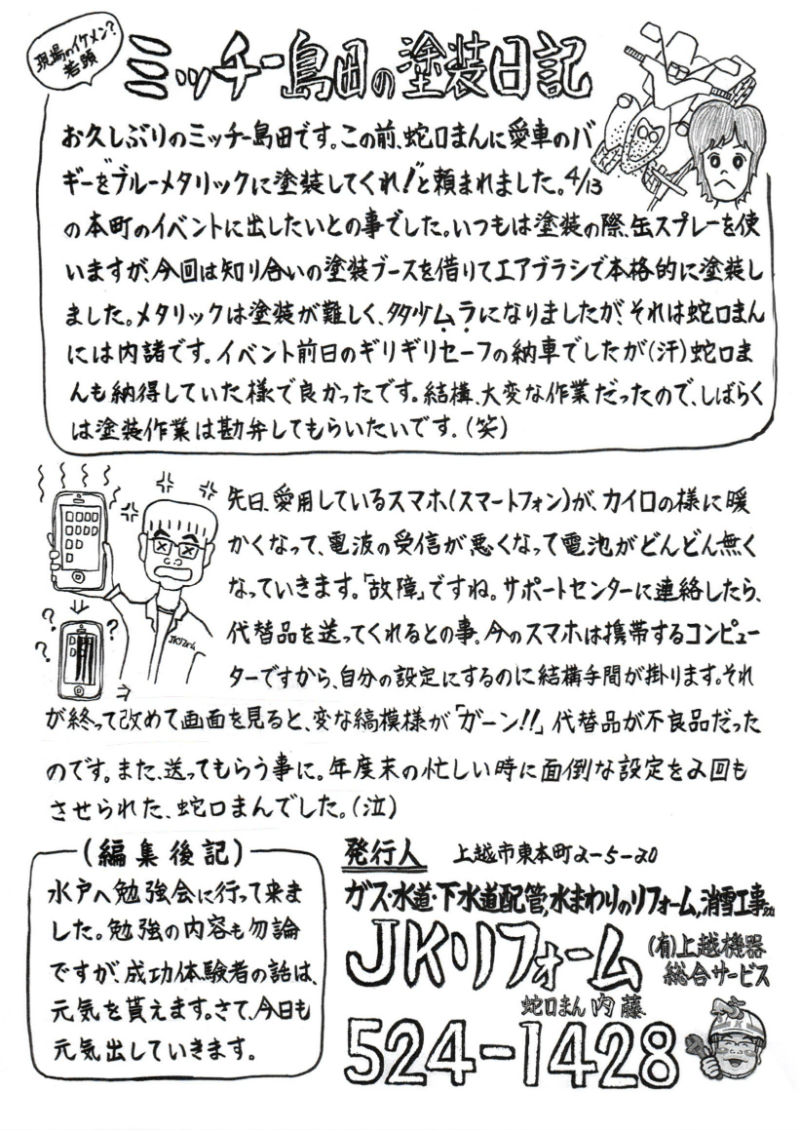 現場のイケメン?
若頭
ミッチー島田の塗装日記
お久しぶりのミッチー島田です。この前、蛇口まんに愛車のバ
ギーを"ブルーメタリックに塗装してくれ!"と頼まれました。4/13
の本町のイベントに出したいとの事でした。いつもは塗装の際、缶スプレーを使
いますが、今回は知り合いの塗装ブースを借りてエアブラシで本格的に塗装し
ました。メタリックは塗装が難しく、多少ムラになりましたが、それは蛇口まん
には内諸です。イベント前日のギリギリセーフの納車でしたが(汗)蛇口ま
んも納得していた様で良かったです。結構、大変な作業だったので、しばらく
は塗装作業は勘弁してもらいたいです。(笑)
先日、愛用しているスマホ(スマートフォン)が、カイロの様に暖
かくなって、電波の受信が悪くなって電池がどんどん無く
なっていきます。「故障」ですね。サポートセンターに連絡したら、
代替品を送ってくれるとの事。今のスマホは携帯するコンピュー
ターですから、自分の設定にするのに結構手間が掛ります。それ
が終って改めて画面を見ると、変な縞模様が「ガーン!!」代替品が不良品だった
のです。また、送ってもらう事に。年度末の忙しい時に面倒な設定を2回も
させられた、蛇口まんでした。(泣)
(編集後記)
水戸へ勉強会に行って来ま
した。勉強の内容も勿論
ですが、成功体験者の話は、
元気を貰えます。さて、今日も
元気出していきます。
発行人 上越市東本町2-5-20
ガス・水道・下水道配管,水まわりのリフォーム,消雪工事etc
JKリフォーム
(有)上越機器
総合サービス
蛇口まん 内藤
524-1428